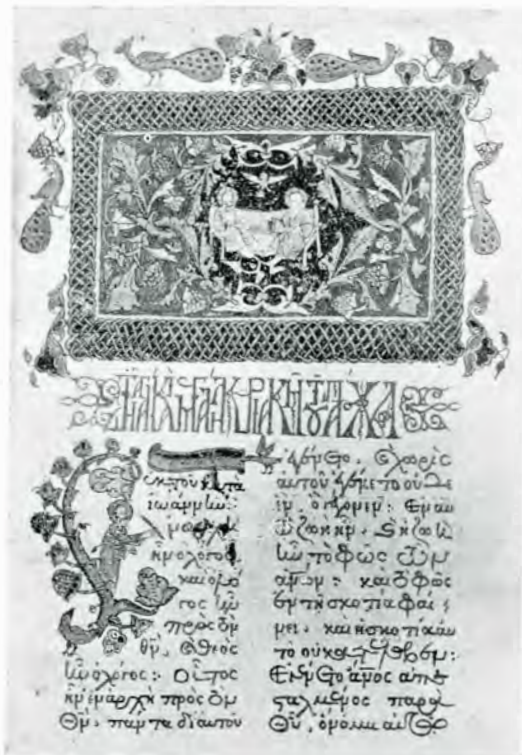 ἐκ τοῦ κατὰ
ἰωάννην:
ἦν ὁ λόγος,
καὶ ὁ λό
γος ἦν
πρὸς τὸν
θν, καὶ θεὸς
ἦν ὁ λόγος: Οὗτος
ἦν ἐν ἀρχῇ πρὸς τὸν
Θν. πάντα δι αὐτοῦ
ἐγένετο, καὶ χωρὶς
αὐτοῦ ἐγένετο οὐδὲ
ἓν ὃ γέγονεν: Ἐν αὐ
τῷ ζωὴ ἦν, καὶ ἡ ζωὴ
ἦν τὸ φῶς τῶν
ἀνων: καὶ τὸ φῶς
ἐν τῇ σκοτία φαί
νει. καὶ ἡ σκοτία αὐ
τὸ οὐ κατέλαβεν:
Ἐγένετο ἄνος ἀπε
σταλμένος παρὰ
Θυ, ὄνομα αὐτῷ